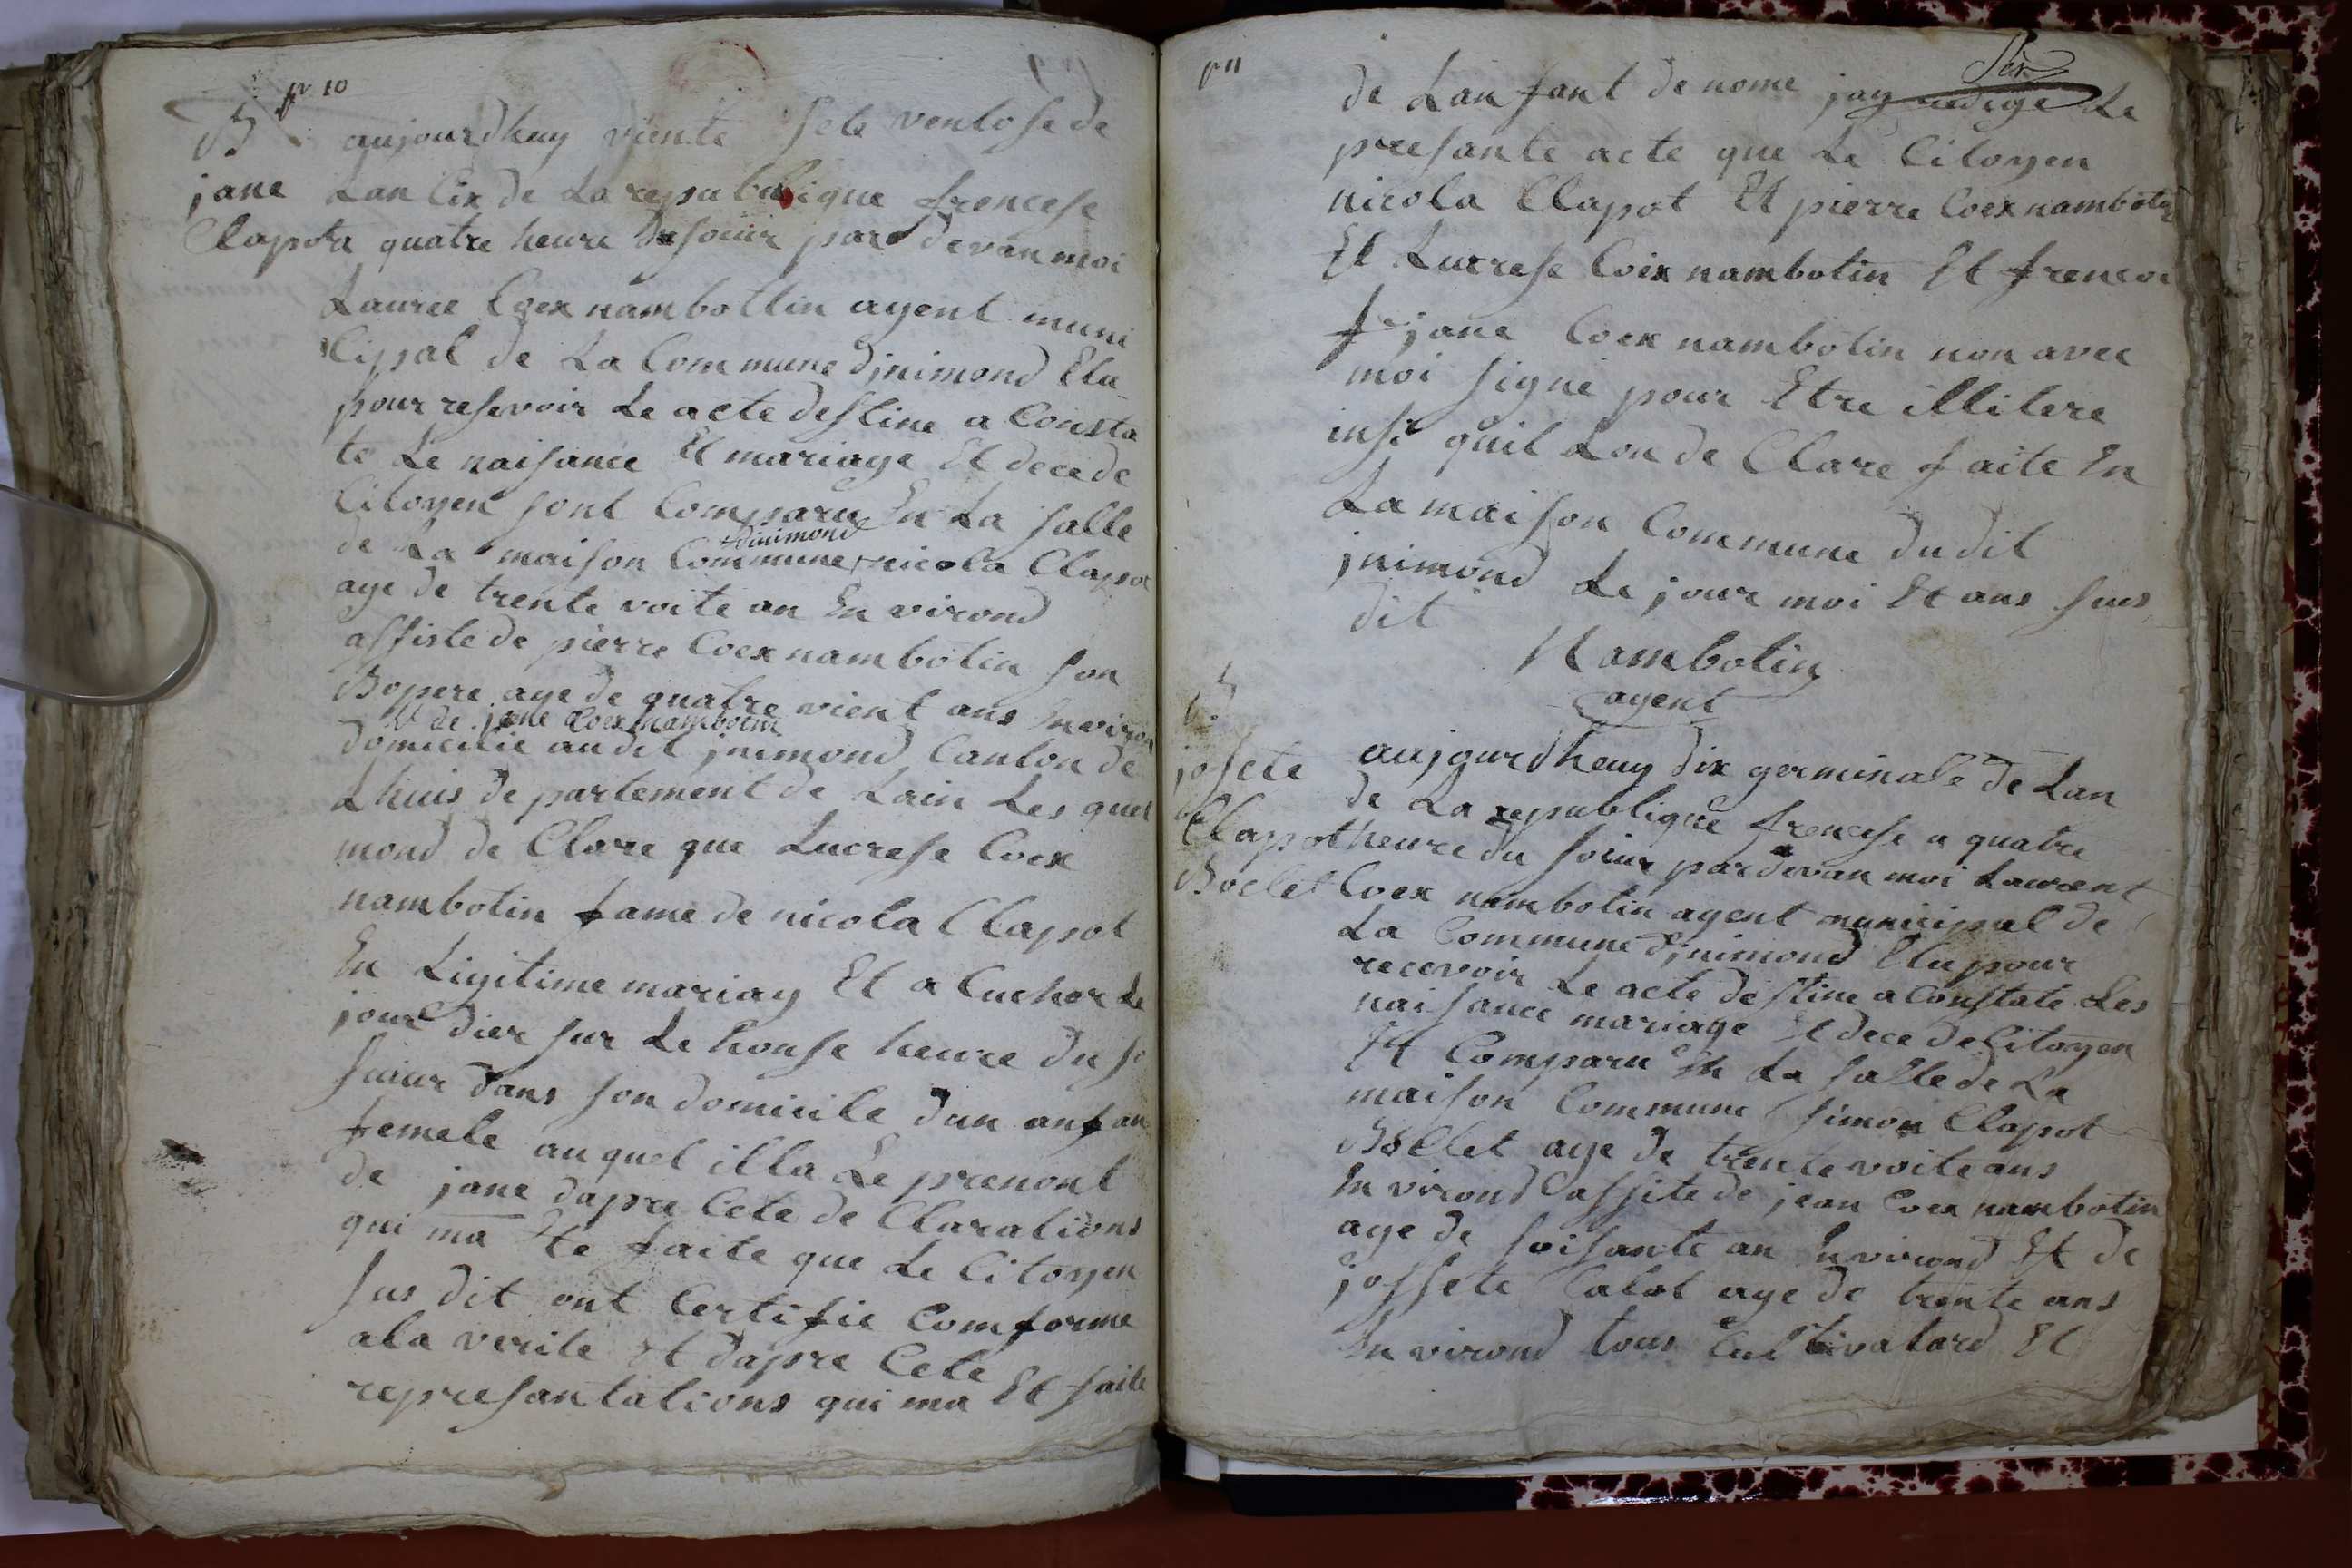 n 10
B
jane
Clapot
aujourdheuy viente sete ventose de
Lan Cix de La republique francese
a quatre heure du soiur par devan moi
Lauree Coex nambottin agent muni
cipal de La Commune djnimond Elu
pour resevoir Le acte destine a Consta
te Le naisance Et mariage Et decede
Citoyen sont Comparu En La salle
de La maison Commune + nicola Clapot
+ dinimond
age de trente voite an En virond
assiste de pierre Coex nambotin son
Bopere age de quatre vient ans Environ
Et de jane Coex nambotin
domicilie au dit jnimond Canton de
Lhuis de partement de Lain Les quel
mond de Clare que Lucrese Coex
nambotin fame de nicola Clapot
En Ligitime mariag Et a Cuchez Le
jour dier sur Le honse heure du so
suiur dans son domicile dun anfan
femele auquel illa Le prenont
de jane dapre Cete de Clarations
qui ma Ete faite que Le Citoyen
sus dit ont Certifie Comforme
ala verite Et dapre Cete
represantations qui ma Et faite
n 11
de Lanfant de nome jay redige Le
presante acte que Le Citoyen
nicola Clapot Et pierre Coex nambotin
Et Lucrese Coix nambotin Et francoi
f jane Coex nambotin non avec
moi signe pour Etre illitere
insi quil Lon de Clare faite En
La maison Commune du dit
jnimond Le jour moi Et ans sus
dit
Nambotin
agent
B
josete
Clapot
Boclet
aujourdheuy dix germinale de Lan
de La republique francese a quatre
heure du soiur par devan moi Laurent
Coex nambotin agent municipal de
La Commune djnimond Elu pour
recevoir Le acte destine a Constate Les
naisance mariage Et dece de Citoyen
Et Comparu En La salle de La
maison Commune simon Clapot
Boclet age de trente voite ans
En virond assite de jean Coex nambotin
age de soisante an En virond Et de
jossete Calot age de trente ans
En virond tous Cultivatard Et